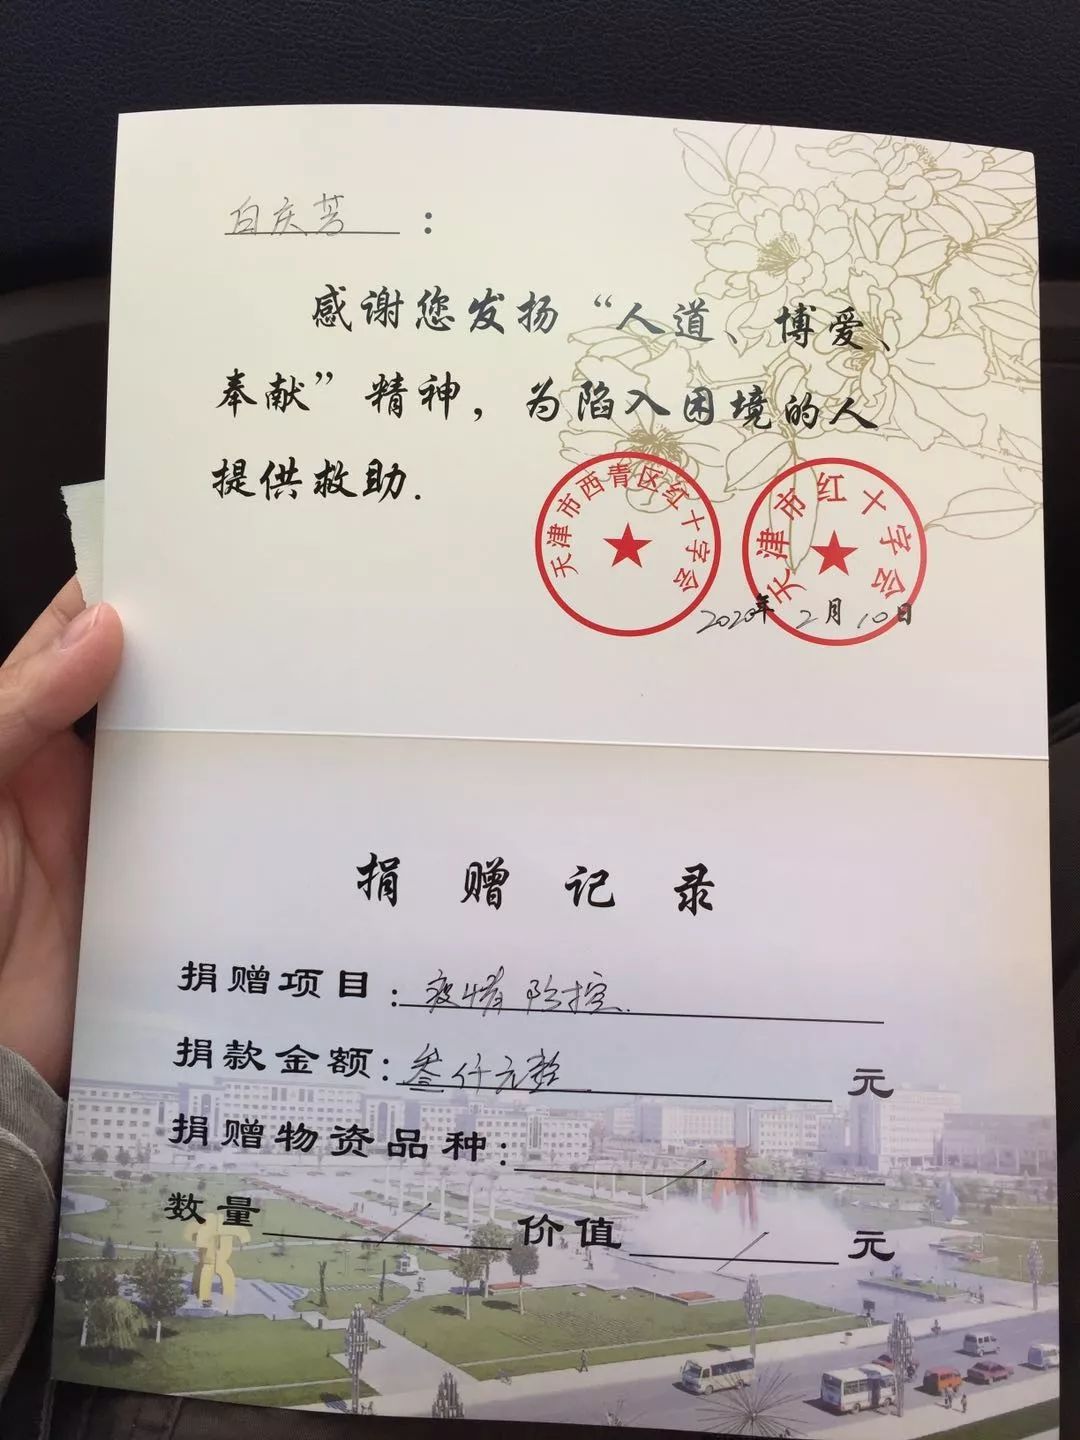 白庆芳：
感谢您发扬“人道、博爱、
奉献”精神，为陷入困境的人
提供救助.
天津市西青区红十字会
天津市红十字会
2020年2月10日
捐赠记录
捐赠项目：疫情防控.
捐款金额：叁仟元整 元
捐赠物资品种：/
数量 / 价值 / 元